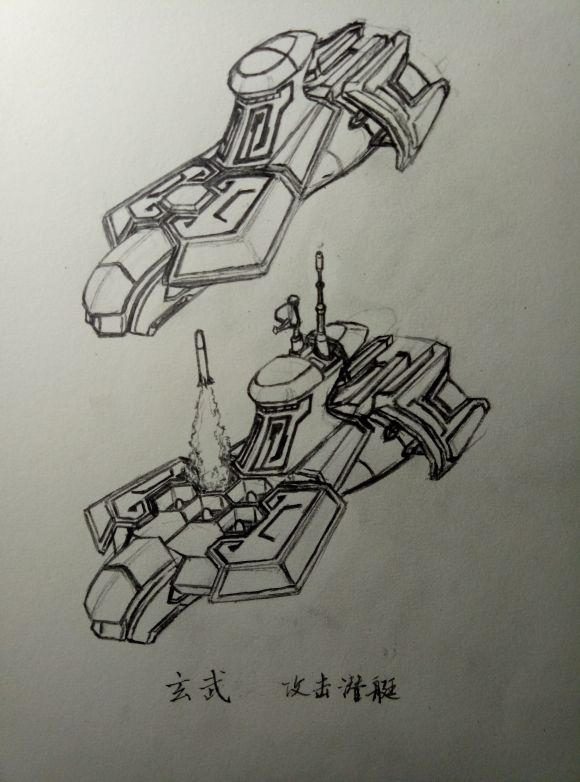 玄武 攻击潜艇